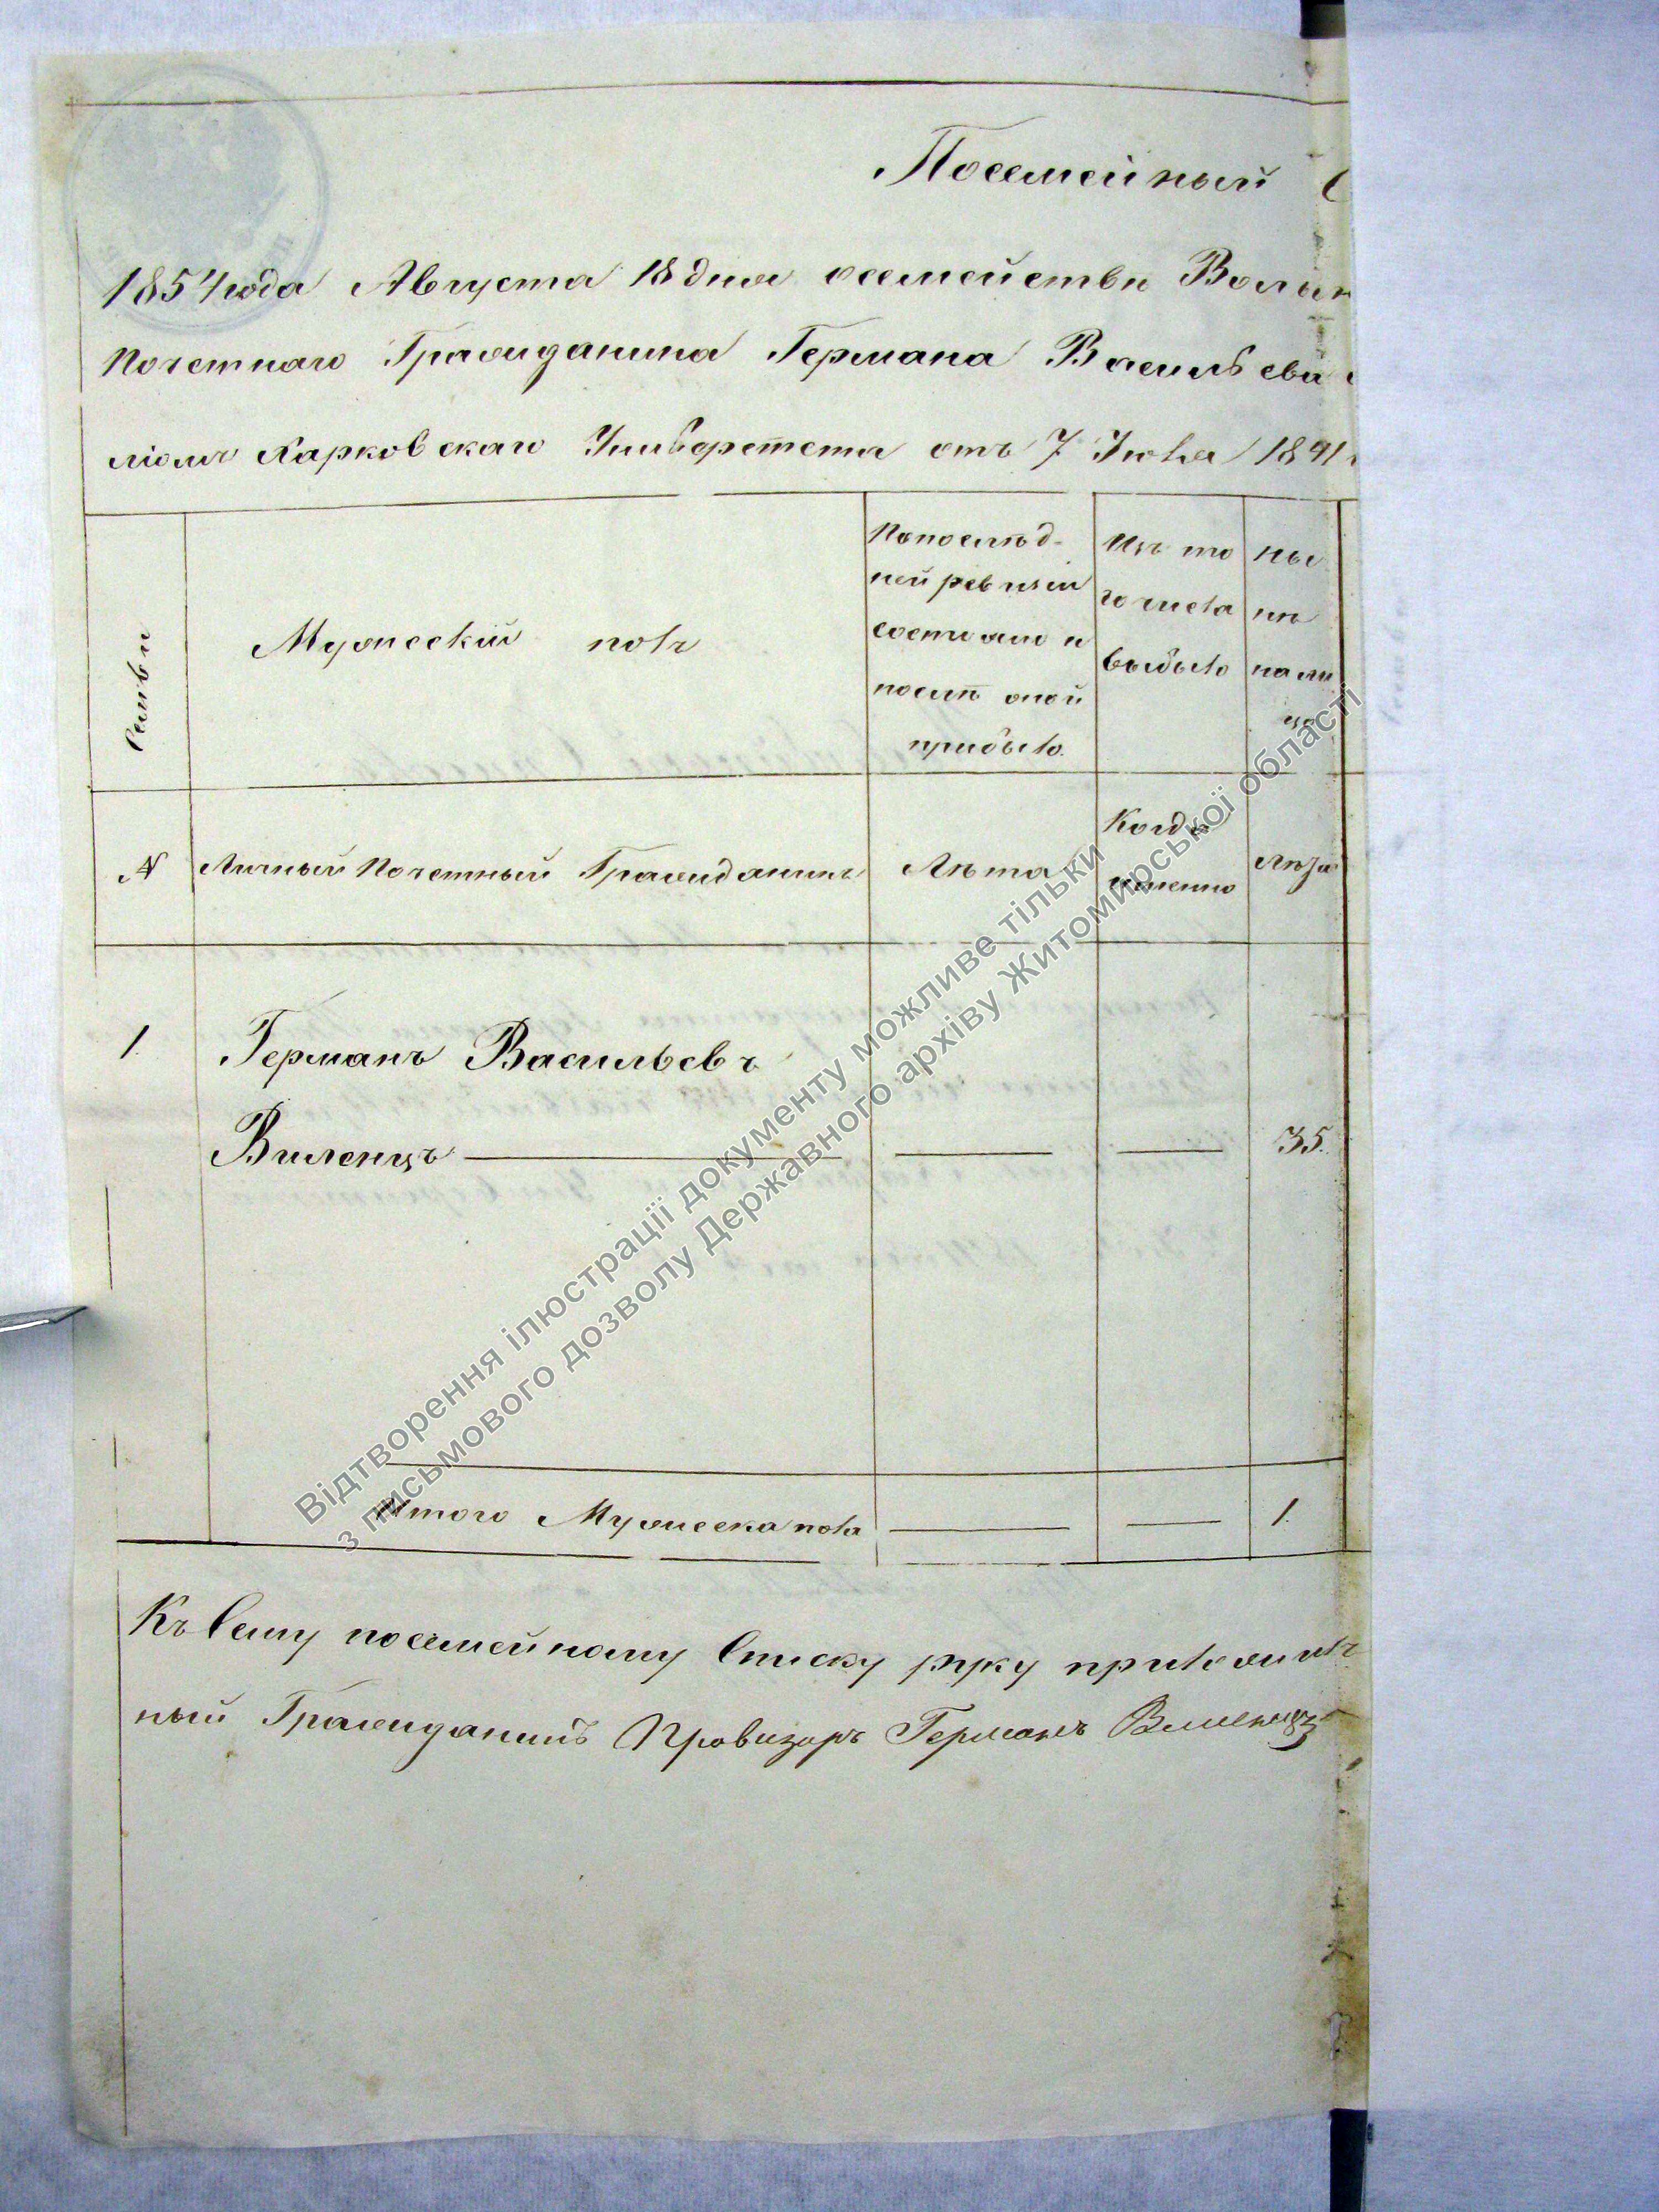 Посемейный С
1854 года Августа 18 дня о семействе Волын
Почетнаго Гражданина Германа Васильева
ліомъ Харковскаго Универстета отъ 7 Июля 1841
Семьи
Мужескій полъ
По послѣд-
ней ревизіи
состояло и
послѣ оной
прибыло.
Изъ то
го числа
выбыло
ны
нѣ
на ли
цо
№
Личный Почетный Гражданинъ
Лѣта
Когда
именно
Лѣта
1.
Германъ Васильевъ
Виленцъ
35.
Итого Мужеска пола
1.
Къ сему посемейному Списку руку приложилъ
ный Гражданинъ Провизоръ Германъ Виленцъ
Відтворення ілюстрації документу можливе тільки
з письмового дозволу Державного архіву Житомирської області